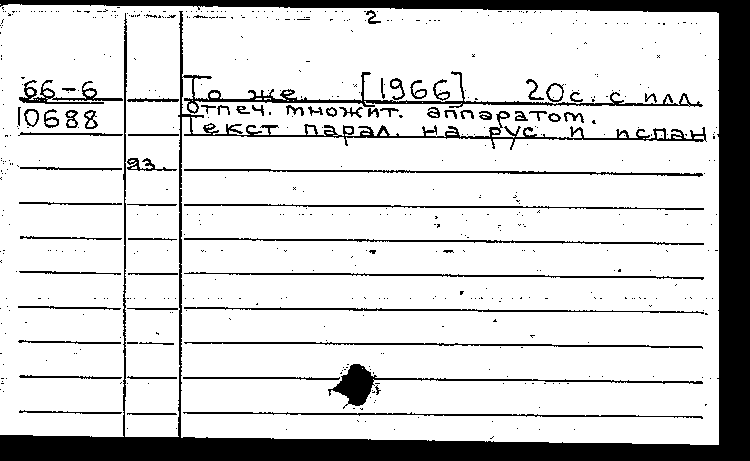 2
66-6 То же [1966]. 20с. с илл.
Отпеч. множит. аппаратом.
10688 Текст парал. на рус. и испан.
яз.